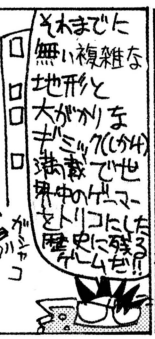 それまでに
無い複雑な
地形と
大がかりな
ギミック(しかけ)
満載で世
界中のゲーマー
をトリコにした
歴史に残る
ゲームだ!!
ガシャコ